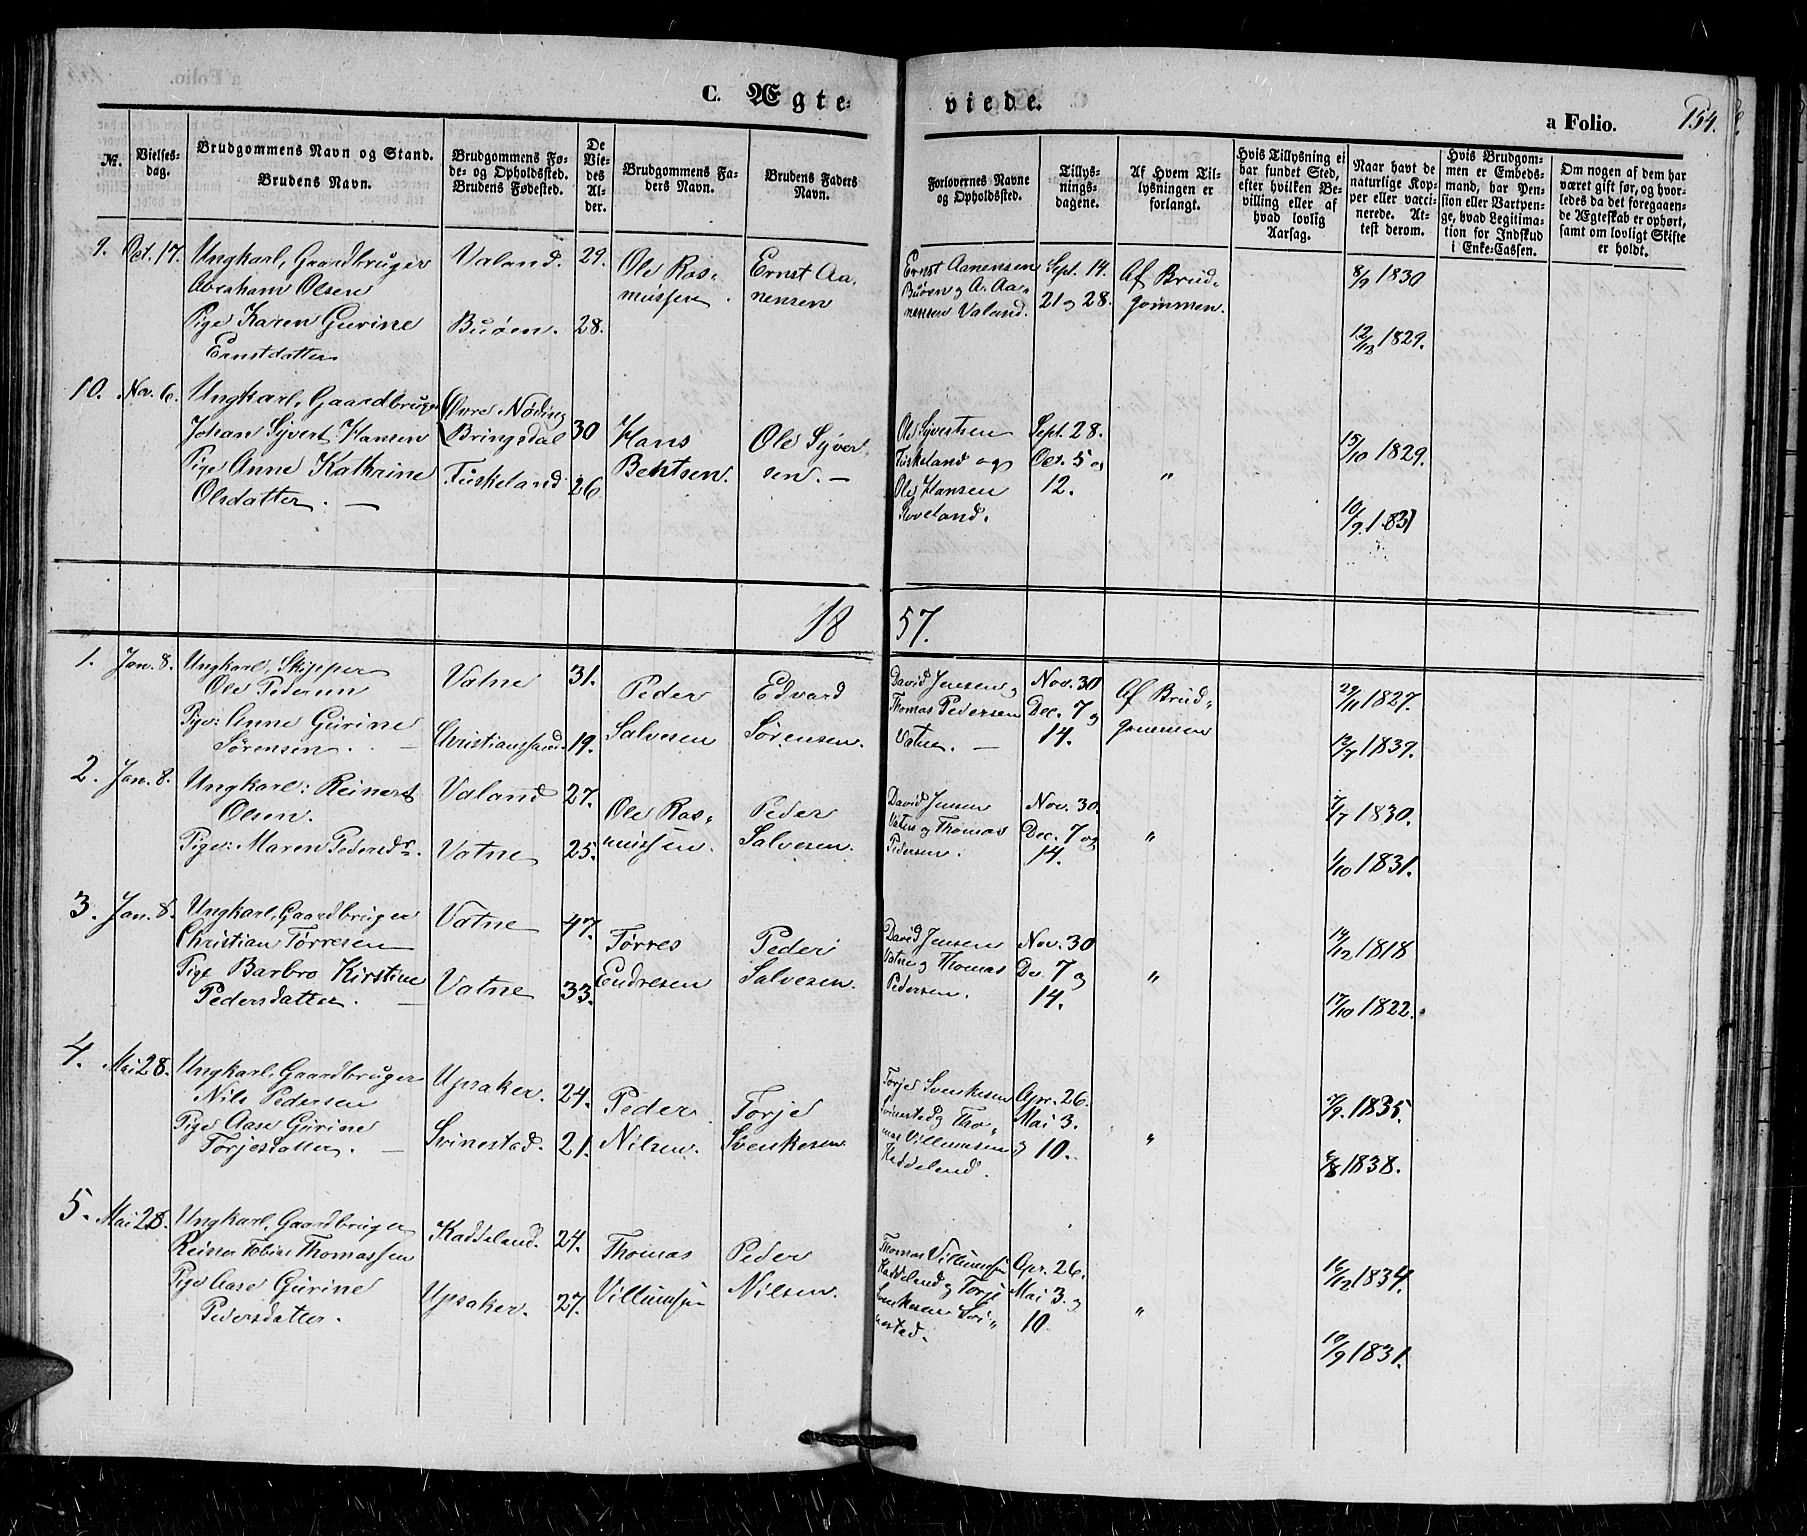 C. Ægteviede.
a Folio. 154.
№.
Vielsesdag.
Brudgommens Navn og Stand.
Brudens Navn.
Brudgommens Føde- og Opholdssted.
Brudens Fødested.
De Viedes Alder.
Brudgommens Faders Navn.
Brudens Faders Navn.
Forlovernes Navne og Opholdssted.
Tillysningsdagene.
Af Hvem Tillysningen er forlangt.
Hvis Tillysning ei har fundet Sted, efter hvilken Bevilling eller af hvad lovlig Aarsag.
Naar havt de naturlige Kopper eller vaccinerede. Attest derom.
Hvis Brudgommen er Embedsmand, har Pension eller Vartpenge, hvad Legitimation for Indskud i Enke-Cassen.
Om nogen af dem har været gift før, og hvorledes da det foregaaende Ægteskab er ophørt, samt om lovligt Skifte er holdt.
9. Oct. 17. Ungkarl, Gaardbruger
Abraham Olsen
Valand. 29.
Pige Karen Gurine
Ernstdatter
Buøen. 28.
Ole Rasmussen.
Ernst Aanensen
Ernst Aanensen
Buøen og A. Aanensen Valand.
Sept. 14.
21 og 28.
Af Brudgommen.
8/9 1830
12/12 1829.
10. Nov. 6. Ungkarl, Gaardbruger
Johan Syvert Hansen
Øvre Nøding
Bringsdal 30
Pige Anne Kathrine
Olsdatter. —
Fuskeland 26
Hans
Bentsen.
Ole Syversen. —
Ole Syvertsen
Fuskeland og
Ole Hansen
Roveland.
Sept. 28.
Oct. 5 og
12.
"
15/10 1829.
10/9 1831
1857.
1. Jan. 8. Ungkarl, Skipper
Ole Pedersen
Vatne 31.
Pige: Anne Gurine
Sørensen. —
Christianssand. 19.
Peder
Salvesen
Edvard
Sørensen.
David Jensen og
Thomas Pedersen
Vatne. —
Nov. 30
Dec. 7 og
14.
Af Brudgommen
29/11 1827.
17/7 1839.
2. Jan. 8. Ungkarl: Reinert
Olsen.
Valand 27.
Pige: Maren Pedersdr.
Vatne 25.
Ole Rasmussen.
Peder
Salvesen.
David Jensen
Vatne og Thomas
Pedersen.
Nov. 30.
Dec. 7 og
14.
"
7/7 1830.
1/10 1831.
3. Jan. 8. Ungkarl, Gaardbruger
Christian Tørresen
Vatne 47.
Pige Barbro Kirstine
Pedersdatter. —
Vatne 33.
Tørres
Endresen
Peder
Salvesen.
David Jensen
Vatne og Thomas
Pedersen.
Nov. 30
Dec. 7 og
14.
"
14/12 1818
17/10 1822.
4. Mai 28. Ungkarl, Gaardbruger
Nils Pedersen
Upsaker. 24.
Pige Aase Gurine
Torjesdatter. —
Svinestad. 21.
Peder
Nilsen.
Torje
Svenkesen
Torje Svenkesen
Svinestad og Thomas Villumsen
Kaddeland.
Apr. 26.
Mai 3.
og 10.
"
7/9 1835.
6/8 1838.
5. Mai 28. Ungkarl, Gaardbruger
Reiner Tobias Thomassen
Kaddeland. 24.
Pige Aase Gurine
Pedersdatter.
Upsaker. 27.
Thomas
Villumsen
Peder
Nilsen.
Thomas Villumsen
Kaddeland og Torje
Svenkesen Svinestad.
Apr. 26.
Mai 3. og
10.
"
16/12 1834.
10/9 1831.